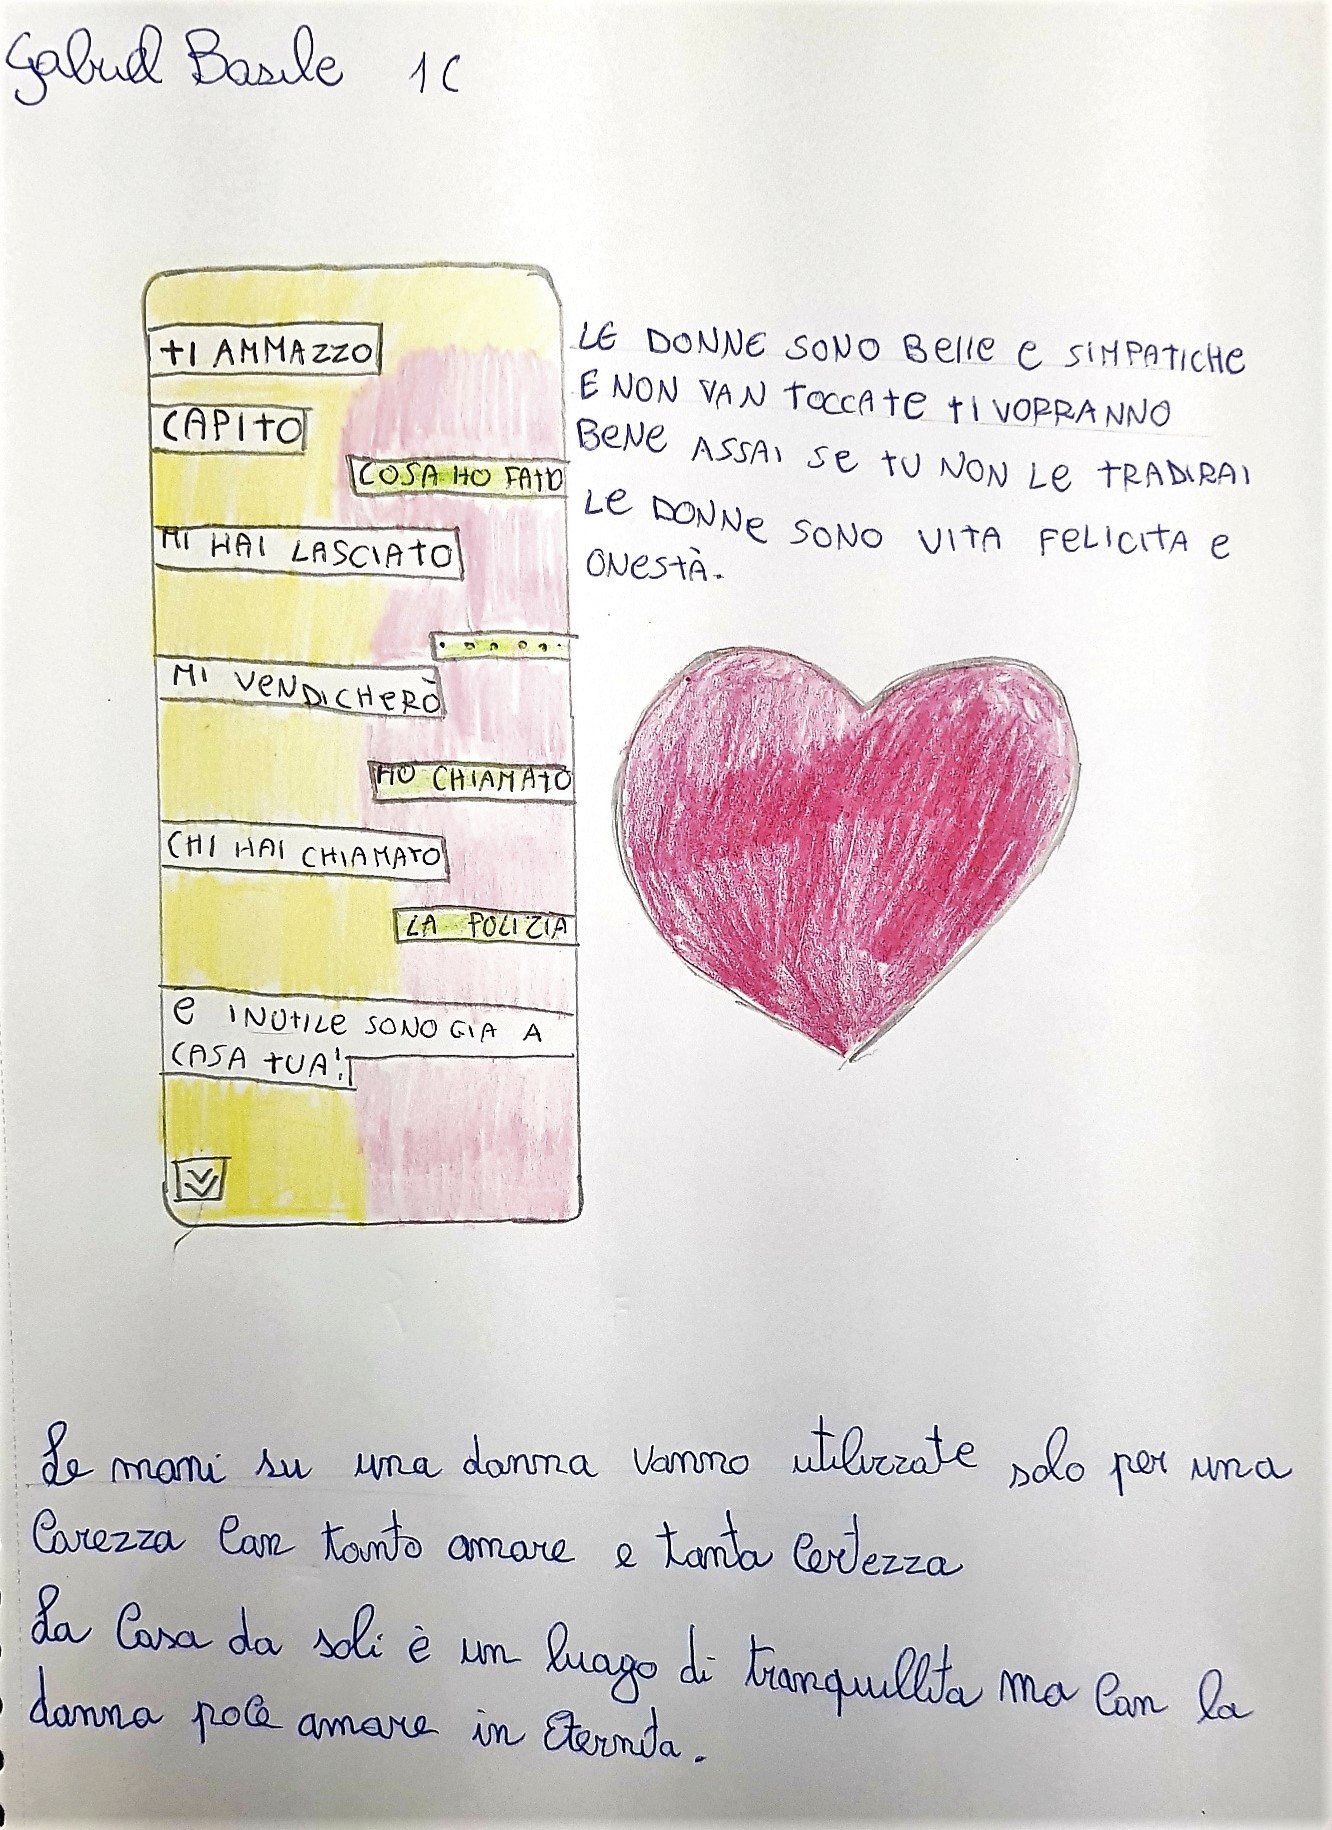 Gabriel Basile 1C
TI AMMAZZO
CAPITO
COSA HO FATO
MI HAI LASCIATO
......
MI VENDICHERÒ
HO CHIAMATO
CHI HAI CHIAMATO
LA POLIZIA
E INUTILE SONO GIA A
CASA TUA!
LE DONNE SONO BELLE E SIMPATICHE
E NON VAN TOCCATE TI VORRANNO
BENE ASSAI SE TU NON LE TRADIRAI
LE DONNE SONO VITA FELICITA E
ONESTÀ.
Le mani su una donna vanno utilizzate solo per una
carezza con tanto amore e tanta certezza
La casa da soli è un luogo di tranquillita ma con la
donna pace amore in eternita.